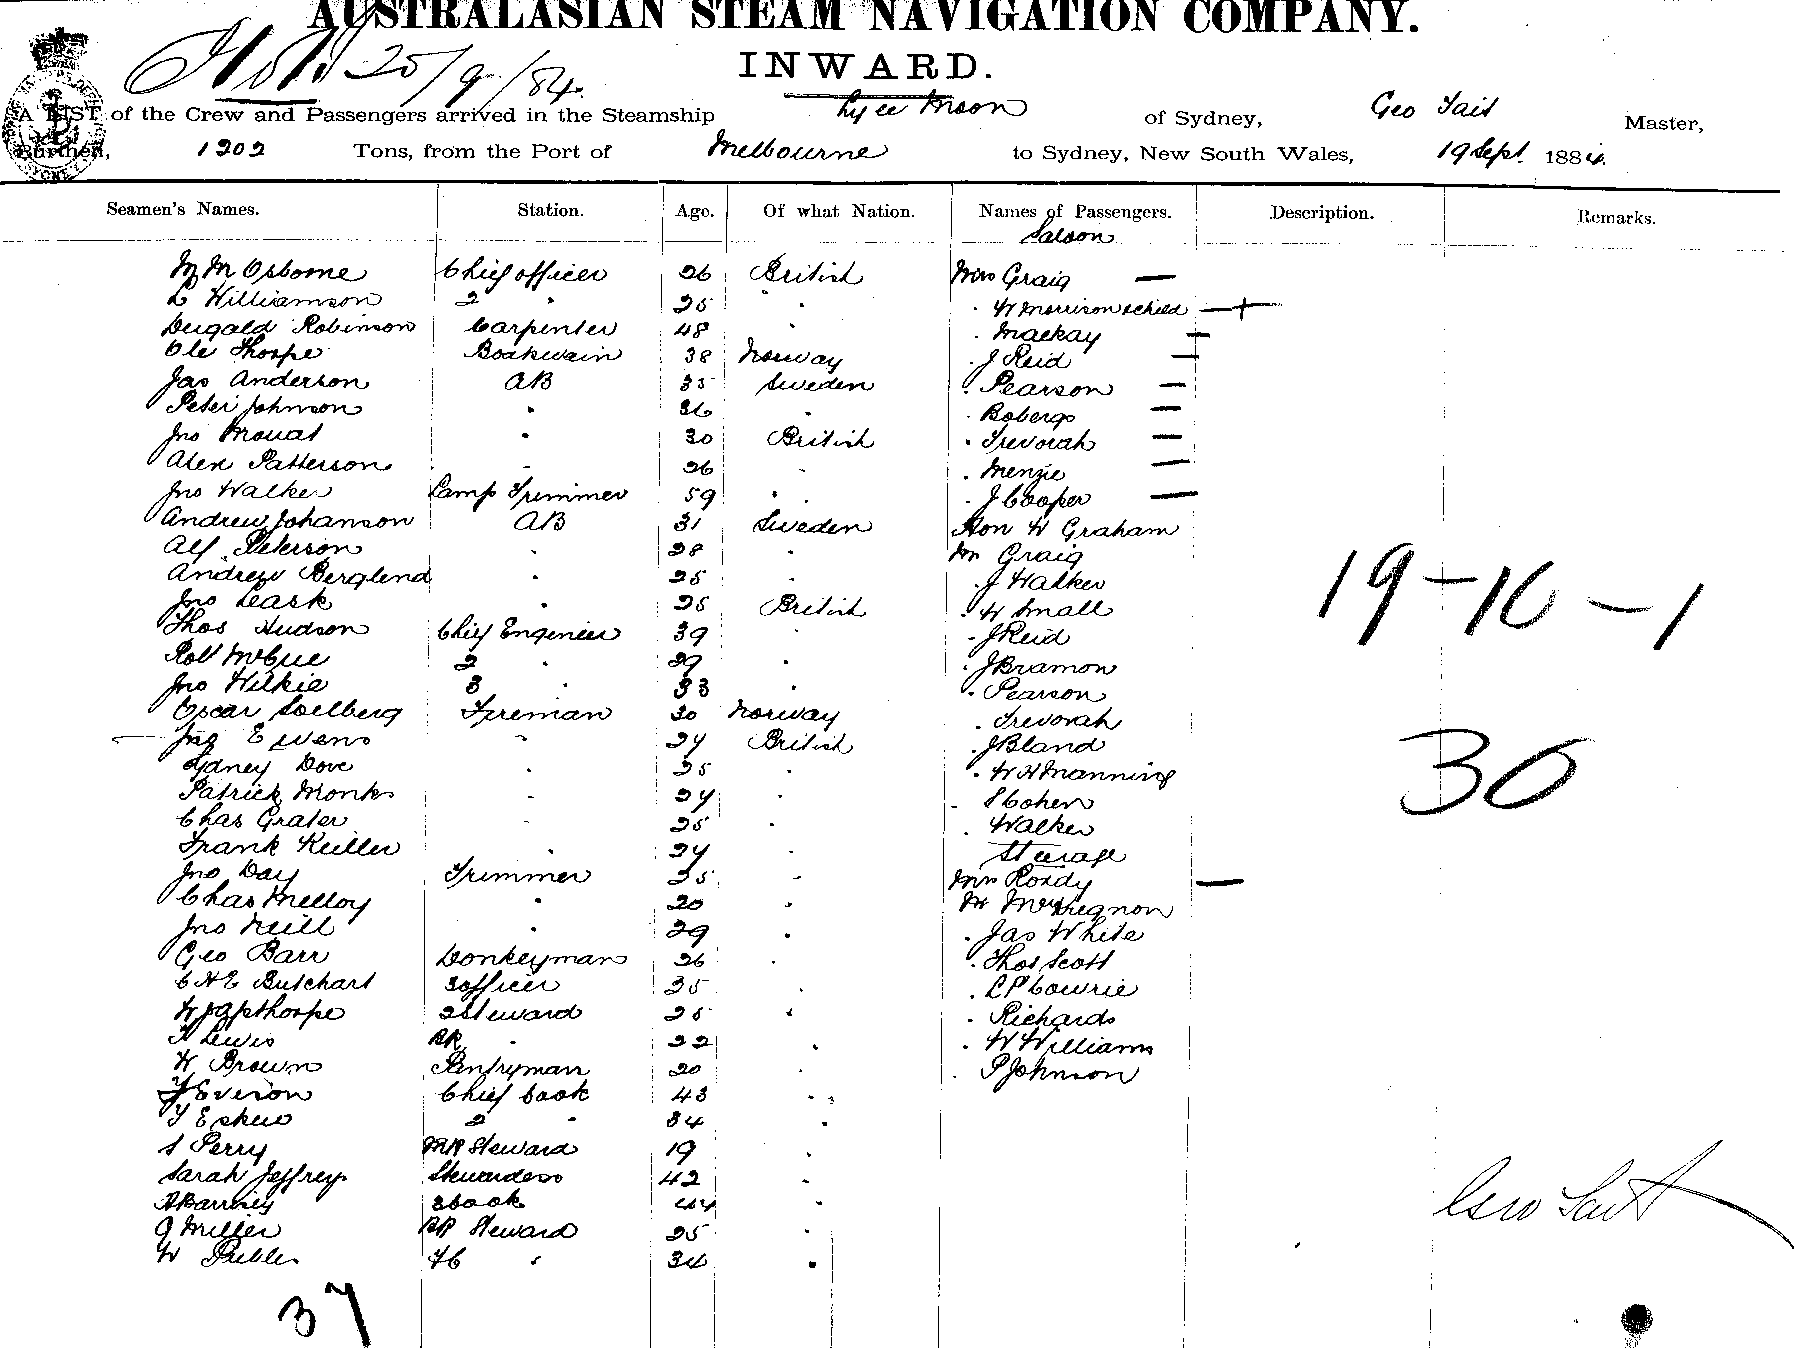 AUSTRALASIAN STEAM NAVIGATION COMPANY.
25/9/84.
INWARD.
A LIST of the Crew and Passengers arrived in the Steamship Lyee Moon of Sydney, Geo Tait Master,
Burthen, 1202 Tons, from the Port of Melbourne to Sydney, New South Wales, 19 Sept. 1884.
Seamen's Names. Station. Age. Of what Nation. Names of Passengers. Description. Remarks.
Saloon
M M Osborne Chief officer 26 British Mrs Graig —
L Williamson 2 " 25 " " W Morrison & child — +
Dugald Robinson Carpenter 48 " " Mackay —
Ole Thorpe Boatswain 38 Norway " J Reid —
Jas Anderson AB 35 Sweden " Pearson —
Peter Johnson " 26 " " Boberg —
Jno Mouat " 30 British " Trevorah —
Alex Patterson " 26 " " Menzie —
Jno Walker Lamp Trimmer 59 " " J Cooper —
Andrew Johanson AB 31 Sweden Hon W Graham
Alf Peterson " 28 " Mr Graig
Andrew Berglend " 25 " " J Walker
Jno Leask " 25 British " W Small
Thos Hudson Chief Engineer 39 " " J Reid
Robt McCue 2 " 29 " " J Bramon
Jno Wilkie 3 " 33 " " Pearson
Oscar Soelberg Fireman 30 Norway " Trevorah
Jas Ewens " 24 British " J Bland
Sydney Dove " 25 " " W H Manning
Patrick Monks " 24 " " S Cohen
Chas Grater " 25 " " Walker
Frank Keiller " 24 " Steerage
Jno Day Trimmer 25 " Mrs Roddy —
Chas Melloy " 20 " Mr
Jno Neill " 29 " " Jas White
Geo Barr Donkeyman 26 " " Thos Scott
C H E Butchart 3 officer 35 " " C P Cowrie
W J Apthorpe 2 Steward 25 " " Richards
H Lewis BR " 22 " " W Williams
W Brown Pantryman 20 " " P Johnson
J Everon Chief Cook 43 "
T Eskew 2 " 34 "
S Perry MR Steward 19 "
Sarah Jeffrey Stewardess 42 "
A Barnes 3 Cook 44 "
G Miller BR Steward 25 "
W Peebles FC " 34 "
19 — 10 — 1
30
Geo Tait
37